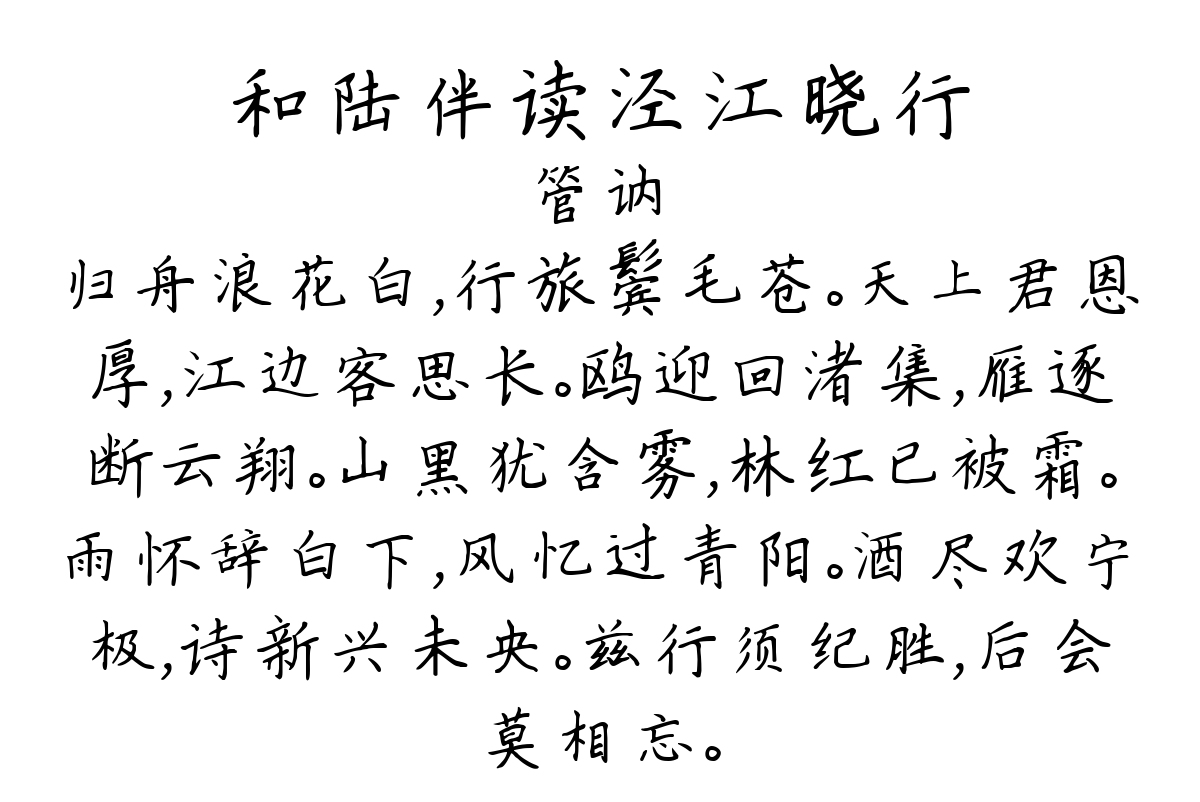 和陆伴读泾江晓行
管讷
归舟浪花白,行旅鬓毛苍。天上君恩
厚,江边客思长。鸥迎回渚集,雁逐
断云翔。山黑犹含雾,林红已被霜。
雨怀辞白下,风忆过青阳。酒尽欢宁
极,诗新兴未央。兹行须纪胜,后会
莫相忘。